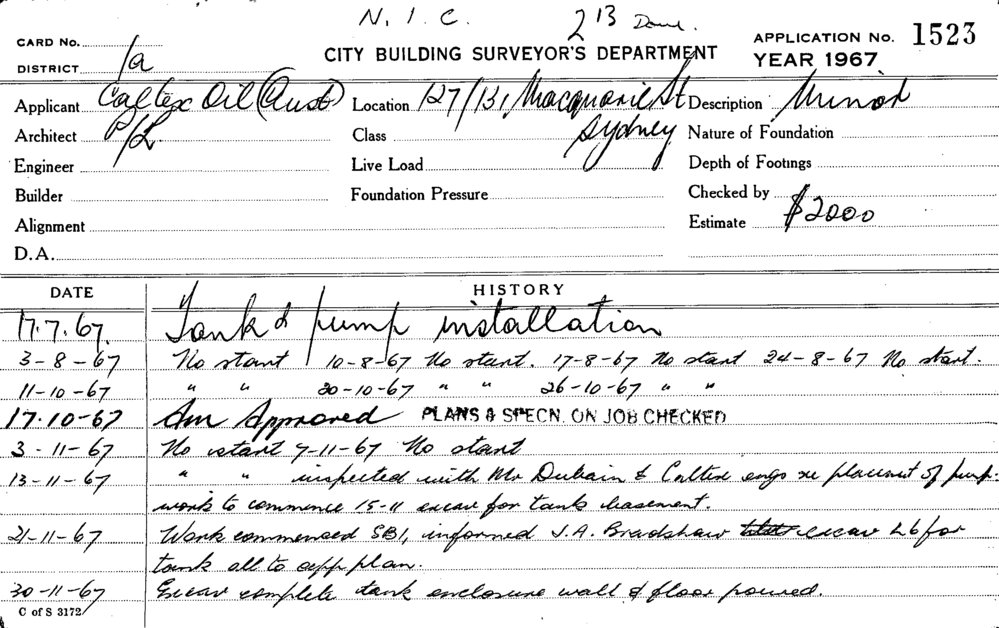 N. I. C. 213
CARD No. CITY BUILDING SURVEYOR'S DEPARTMENT APPLICATION No. 1523
DISTRICT 1a YEAR 1967
Applicant Caltex Oil (Aust) Location 127/131 Macquarie St Description Minor
Architect P/L Class Sydney Nature of Foundation
Engineer Live Load Depth of Footings
Builder Foundation Pressure Checked by
Alignment Estimate $2000
D.A.
DATE HISTORY
17.7.67. Tank & pump installation
3-8-67 No start 10-8-67 No start. 17-8-67 No start 24-8-67 No start.
11-10-67 " " 20-10-67 " " 26-10-67 " "
17.10-67 Am Approved PLANS & SPECN. ON JOB CHECKED
3-11-67 No start 7-11-67 No start
13-11-67 " " inspected with Mr & Caltex engs re placement of pump.
work to commence 15-11 excav for tank basement.
21-11-67 Work commenced SBI, informed J.A. Bradshaw excav for
tank all to app plan.
30-11-67 Excav complete tank enclosure wall & floor poured.
C of S 3172